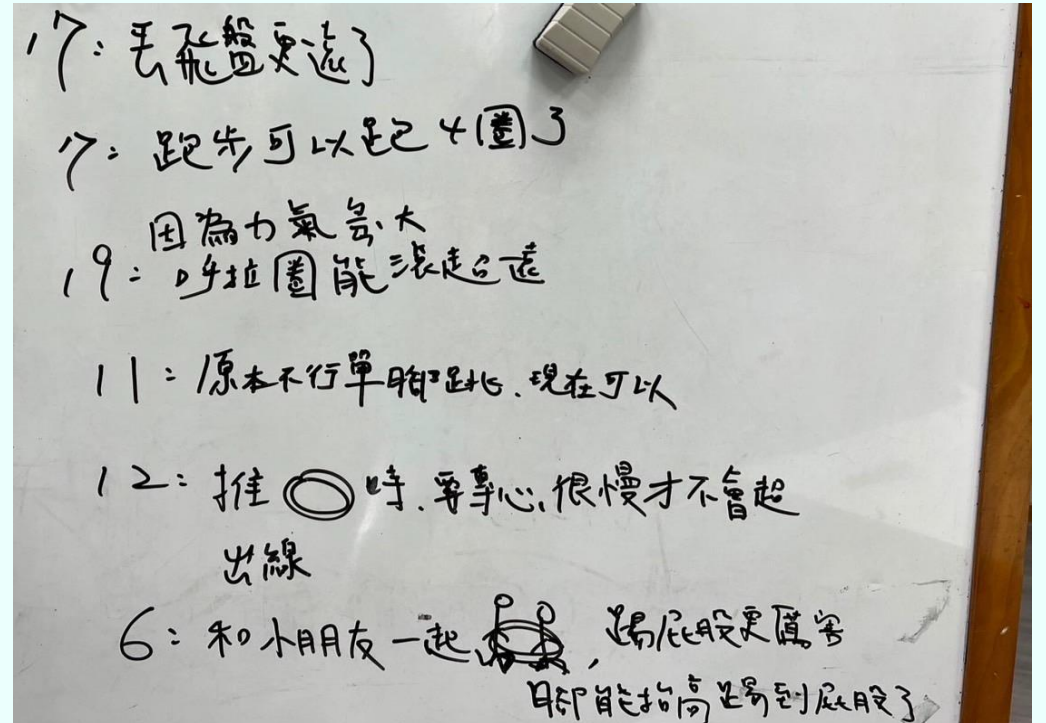 17：丟飛盤更遠了
7：跑步可以跑4圈了
因為力氣夠大
19：呼拉圈能滾超遠
11：原本不行單腳跳.現在可以
12：推 時.要專心,很慢才不會超
出線
6：和小朋友一起 ,踢屁股更厲害
腳能抬高踢到屁股了